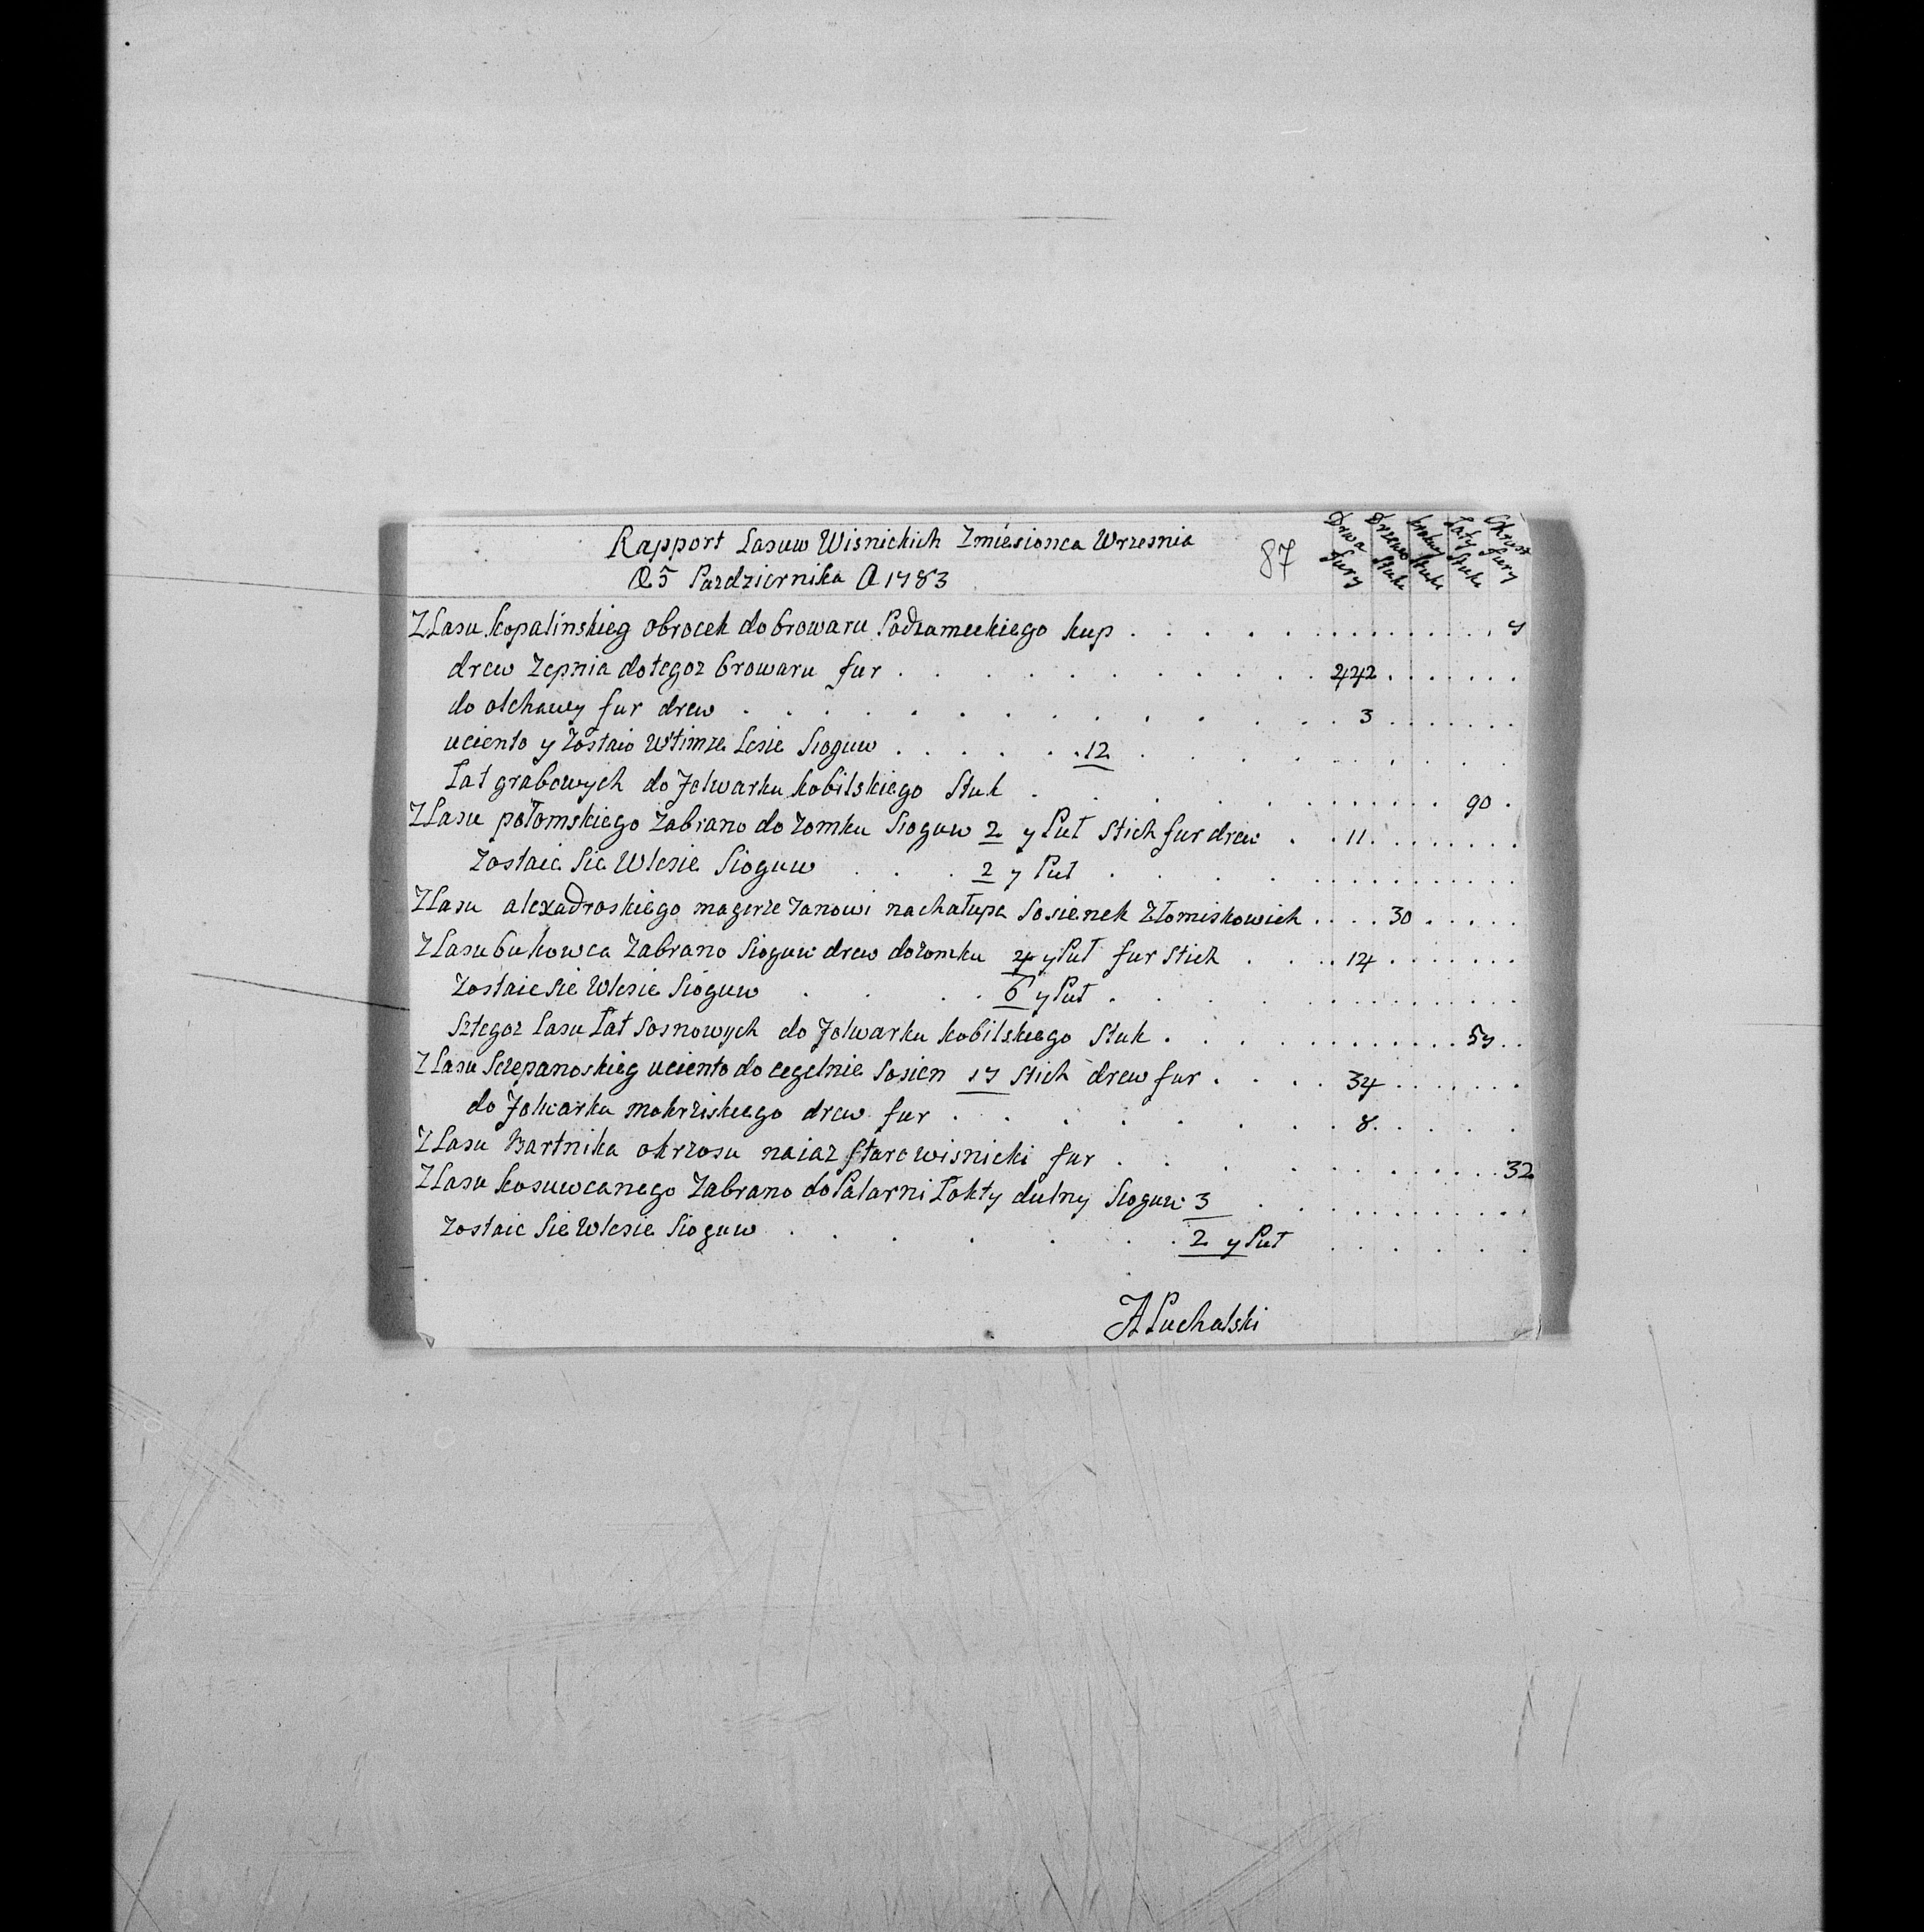 Rapport Lasuw Wisnickich Zmiesionca Wrzesnia
D 5 Pazdziernika A 1783
87
Drwa fury
Drzewo Stuk
Stuk
Łaty Stuk
Chrust fury
ZLasu kopalinskieg obrocek dobrowaru Podzameckiego kup 7
drew Zepnia dotegoz browaru fur 242
do olchawy fur drew 3
uciento y Zostaio Wtimze Lesie Sioguw 12
Łat grabowych do folwarku kobilskiego Stuk 90
ZLasu połomskiego Zabrano do zomku Sioguw 2 y Puł Stich fur drew 11
Zostaie Sie Wlesie Sioguw 2 y Puł
ZLasu alexadroskiego magerze Janowi nachałupe Sosienek Złomiskowich 30
ZLasu bukowca Zabrano Sioguw drew dozomku 4 y Puł fur Stich 14
Zostaie Sie Wlesie Sioguw 6 y Puł
Sztegoz Lasu Łat Sosnowych do folwarku kobilskiego Stuk 57
ZLasu Sczepanoskieg uciento do cegelnie Sosien 17 Stich drew fur 34
do folwarku mokrziskiego drew fur 8
ZLasu Bartnika okrzosu naiaz Starowisnicki fur 32
ZLasu kosuwcanego Zabrano do Palarni Łokty dulny Sioguw 3
Zostaie Sie Wlesie Sioguw 2 y Puł
A Puchalski